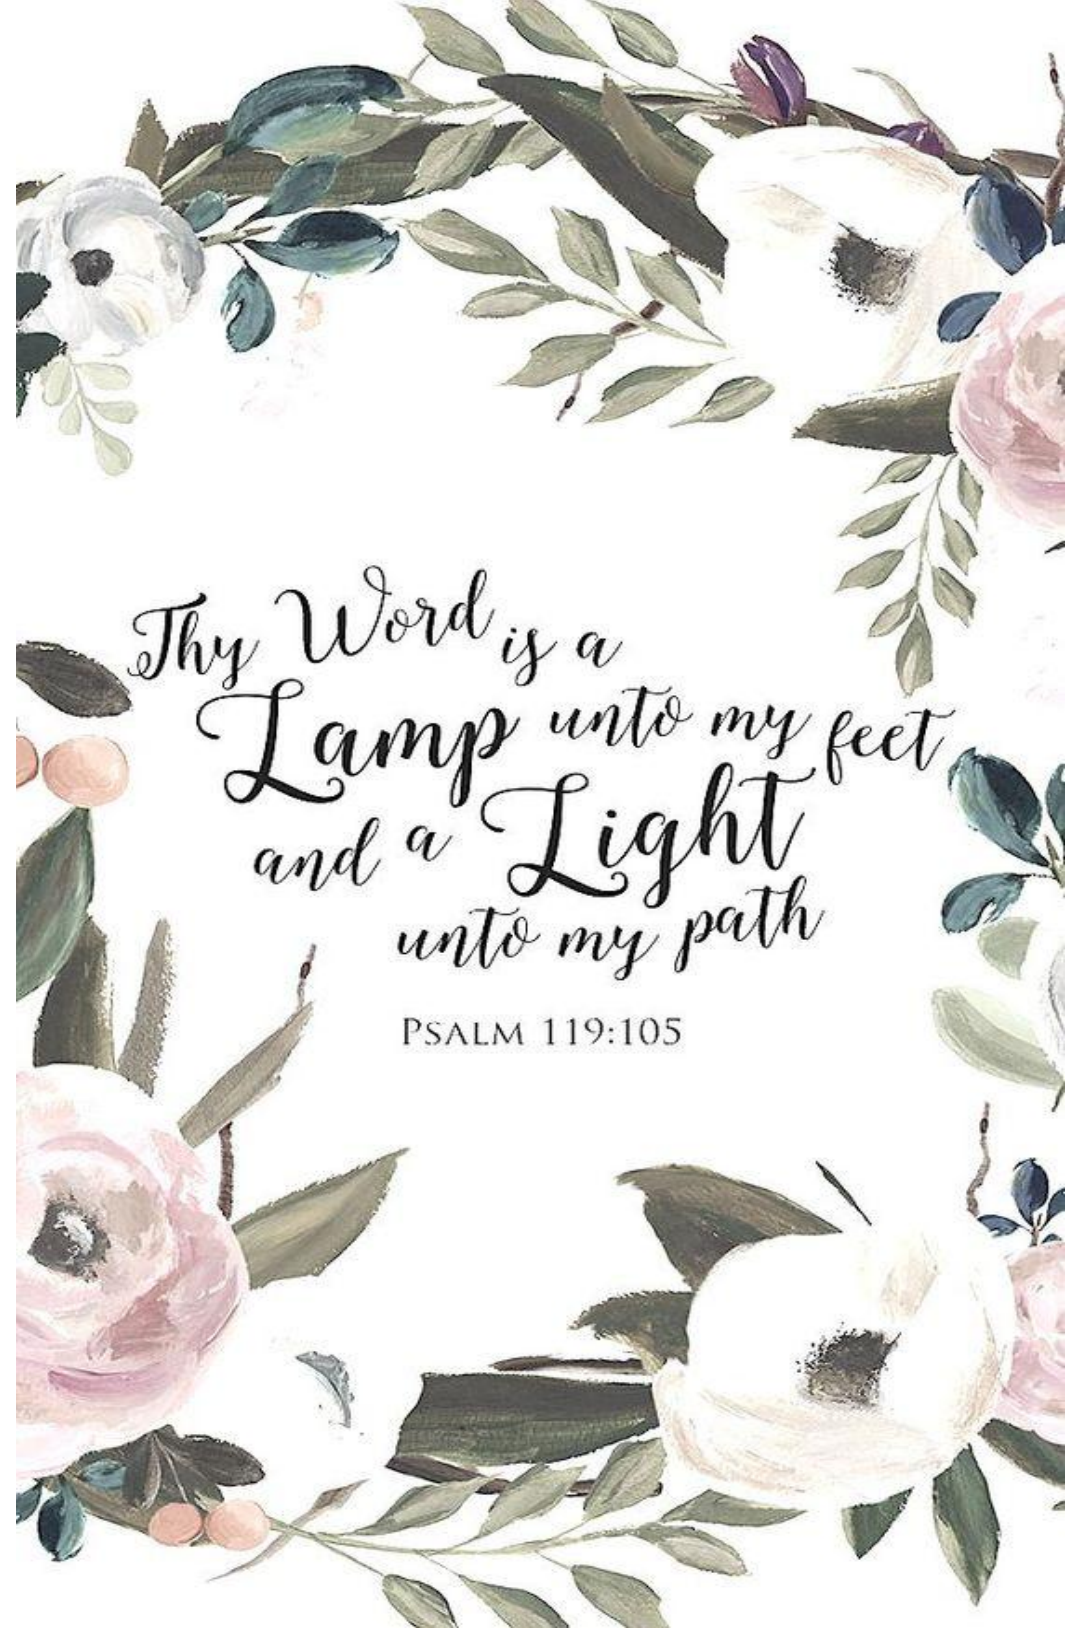 Thy Word is a
Lamp unto my feet
and a Light
unto my path
PSALM 119:105